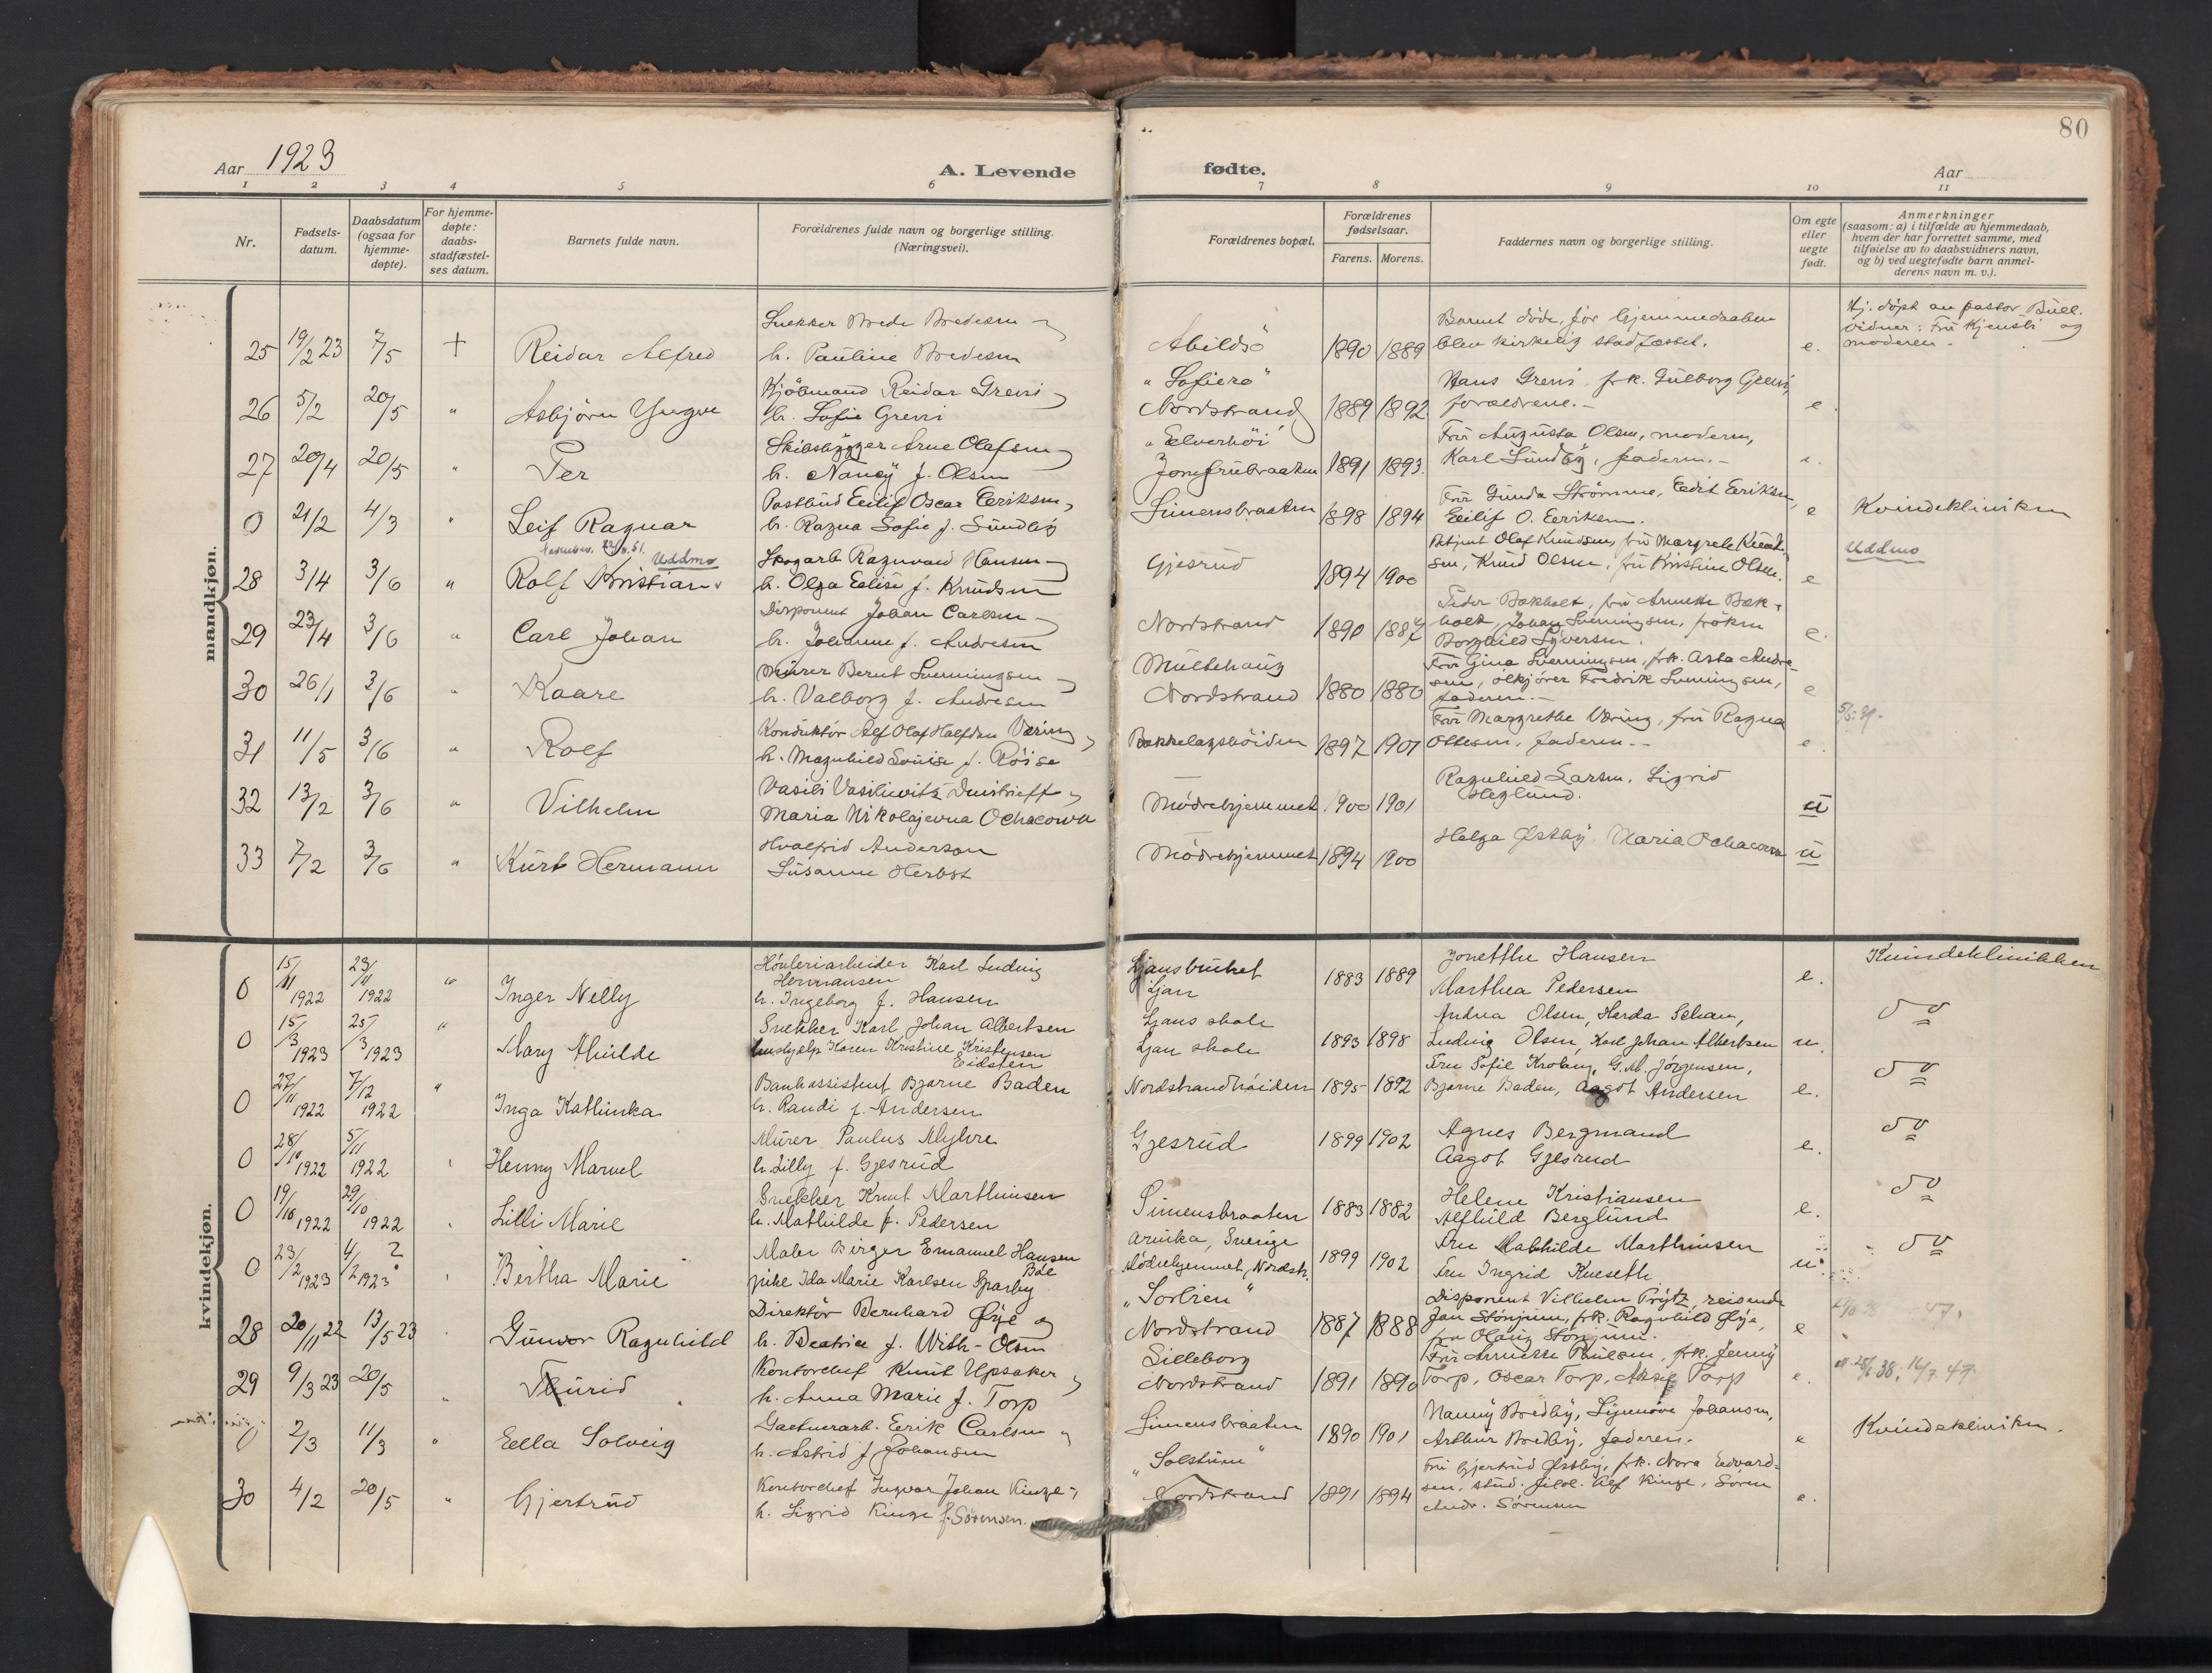 80
Aar 1923
A. Levende
fødte.
Aar
1 2 3 4 5 6 7 8 9 10 11
Nr.
Fødsels-
datum.
Daabsdatum
(ogsaa for
hjemme-
døpte).
For hjemme-
døpte:
daabs-
stadfæstel-
ses datum.
Barnets fulde navn.
Forældrenes fulde navn og borgerlige stilling.
(Næringsvei).
Forældrenes bopæl.
Forældrenes
fødselsaar.
Farens. Morens.
Faddernes navn og borgerlige stilling.
Om egte
eller
uegte
født.
Anmerkninger
(saasom: a) i tilfælde av hjemmedaab,
hvem der har forrettet samme, med
tilføielse av to daabsvidners navn,
og b) ved uegtefødte barn anmel-
derens navn m. v.).
mandkjøn.
25 19/2 23 7/5 + Reidar Alfred
Snekker Brede Bredesen
h. Pauline Bredesen
Abildsö 1890 1889
Barnet döde, för hjemmedaaben
blev kirkelig stadfæstet.
e.
Hj. döpt av pastor Bull.
Vidner: Fru Kjensli og
moderen.
26 5/2 20/5 " Asbjörn Yngve
Kjöbmand Reidar Grevi
h. Sofie Grevi
"Sofiero"
Nordstrand 1889 1892
Hans Grevi, frk. Gulborg Grevi,
forældrene.-
e.
27 20/4 20/5 " Per
Skibsbygger Arne Olafsen
h. Nancy f. Olsen
"Elverhöi
Jomfrubraaten 1891 1893.
Fru Augusta Olsen, moderen,
Karl Lundby, faderen.-
e.
0 21/2 4/3 " Leif Ragnar
Postbud Eilif Oscar Eriksen,
h. Ragna Sofie f. Sundby
Simensbraaten 1898 1894
Fru Gunda Strömme, Edit Eriksen,
Eilif O. Eriksen.
e
Kvindekliniken
28 3/4 3/6 " Rolf Kristian
Uddmo
Skogarb. Ragnvald Hansen
h. Olga Elise f. Knudsen
Gjesrud 1894 1900
Olaf Knudsen, fru Margrete Knud-
sen, Knud Olsen, fru Kristine Olsen.
e
Uddmo
29 23/4 3/6 " Carl Johan
Disponent Johan Carlsen
h. Johanne f. Andresen
Nordstrand 1890 1887
Peder Bækholt, fru Annette Bæk-
holt, Johan Svenningsen, fröken
Borghild Syversen.
e.
30 26/1 3/6 " Kaare
Murer Bernt Svenningsen
h. Valborg f. Andresen
Multehaug
Nordstrand 1880 1880
Fru Gina Svenningsen, frk. Asta Andre-
sen, ölkjörer Fredrik Svenningsen,
faderen.-
e
31 11/5 3/6 " Rolf
Konduktör Alf Olaf Halfdan Væring
h. Magnhild Louise f. Röise
Bækkelagshöiden 1897 1901
Fru Margrethe Væring, fru Ragna
Ottesen, faderen.-
e.
32 13/2 3/6 " Vilhelm
Vasili Vasiliewitz Dmitrieff
Maria Nikolajevna Ochacowa
Mödrehjemmet 1900 1901
Ragnhild Larsen, Sigrid
Heglund.
u
33 7/2 3/6 " Kurt Hermann
Hvalfrid Anderson
Susanne Herbst
Mödrehjemmet 1894 1900
Helga Østby Maria Ochacowa
u
kvindekjøn.
0 15/11 1922 23/11 1922 " Inger Nelly
Høvleriarbeider Karl Ludvig
Hermansen
h. Ingeborg f. Hansen
Ljansbruket
Ljan 1883 1889
Jonetthe Hansen
Marthea Pedersen
e.
Kvindeklinikken
0 15/3 1923 25/3 1923 " Mary Alvilde
Snekker Karl Johan Albertsen
hushjelp Karen Kristine Kristensen
Eidsten
Ljans skole
Ljan skole 1893 1898
Andrea Olsen, Herda Schau,
Ludvig Olsen, Karl Johan Albertsen
u.
do
0 27/11 1922 7/12 1922 " Inga Kathinka
Bankassistent Bjarne Baden
h. Randi f. Andersen
Nordstrandhöiden 1895 1892
Fru Sofie Krolang, G. M. Jörgensen,
Bjarne Baden, Aagot Andersen
e.
do
0 28/10 1922 5/11 1922 Henny Marvel
Murer Paulus Myhre
h. Lilly f. Gjesrud
Gjesrud 1899 1902
Agnes Bergmand
Aagot Gjesrud
e.
do
0 19/10 1922 29/10 1922 Lilli Marie
Snekker Knut Marthinsen
h. Mathilde f. Pedersen
Simensbraaten 1883 1882
Helene Kristiansen
Alfhild Berglund
e.
do
0 23/2 1923 4/2 1923 ? Bertha Marie
Maler Birger Emanuel Hansen
Böe
pike Ida Marie Karlsen Sparby
Arvika, Sverige
Mödrehjemmet, Nordstr. 1899 1902
Fru Mathilde Marthinsen
Fru Ingrid Kneseth
u.
do
28 20/11 22 13/5 23 Gunvor Ragnhild
Direktör Bernhard Øye og
h. Beatrice f. With-Olsen
"Solbren"
Nordstrand 1887 1888
Disponent Vilhelm Prytz, reisende
Jan Stonjum, frk. Ragnhild Øye,
fru Olaug Stonjum.
e
29 9/3 23 20/5 " Turid
Kontorchef Knut Upsaker
h. Anna Marie f. Torp
Lilleborg
Nordstrand 1891 1890
Fru Annette Paulsen, frk. Jenny
Torp, Oscar Torp, Aksel Torp
e.
0 2/3 11/3 " Ella Solveig
Gartnerarb. Erik Carlsen
h. Astrid f. Johansen
Simensbraaten 1890 1901
Nanny Bredby, Synnöve Johansen,
Arthur Bredby, faderen.
e
Kvindekliniken.
30 4/2 20/5 " Gjertrud
Kontorchef Ingvar Johan Kinge
h. Sigrid Kinge f. Sörensen.
"Solstun"
Nordstrand 1891 1894
Fru Gjertrud Østby, frk. Nora Edvard-
sen, stud. filol. Alf Kinge, Sören
Andr. Sörensen
e.